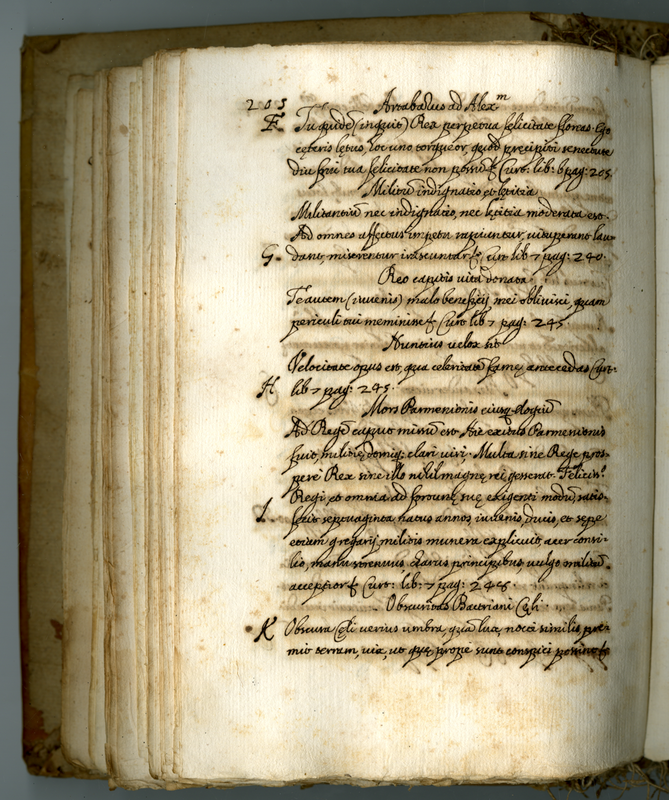 205
Artabazus ad Alex.m
F. Tu quidē (inquit) Rex perpetua felicitate floreas. Ego
cęteris lętus, hoc uno torqueor, quod pręcipiti senectute
diu frui tua felicitate non possū Curt: lib: 6 pag: 205
Militū indignatio, et lętitia
Militantiū nec indignatio, nec lętitia moderata est.
Ad omnes affectus impetu rapiuntur, vituperant lau-
G. dant, miserentur irascuntur Curt lib 7 pag: 240.
Reo capitis vita donata
Te autem (iuvenis) malo beneficij mei oblivisci, quam
periculi tui meminisse Curt lib 7 pag: 245
Nuntius velox sit
Velocitate opus est, qua celeritatē famę antecedas Curt:
H lib 7 pag: 245.
Mors Parmenionis eiusq. elogiū
Ad Regē caput missū est. Hic exitus Parmenionis
fuit, militię domiq; clari viri. Multa sine Rege pros-
pere Rex sine illo nihil magnę rei gesserat. Felicis.o
Regi, et omnia ad fortunę suę exigenti modū satis-
I. fecit septuaginta natus annos, iuvenis ducis, et sępe
etiam gregarij militis munera explicuit, acer consi-
lio, manu strenuus, clarus principibus, vulgo militū
acceptior Curt: lib: 7 pag: 246.
Obscuritas Bactriani Cęli
K Obscura cęli verius umbra, quā lux, nocti similis pre-
mit terram, vix, ut quę prope sunt conspici possint